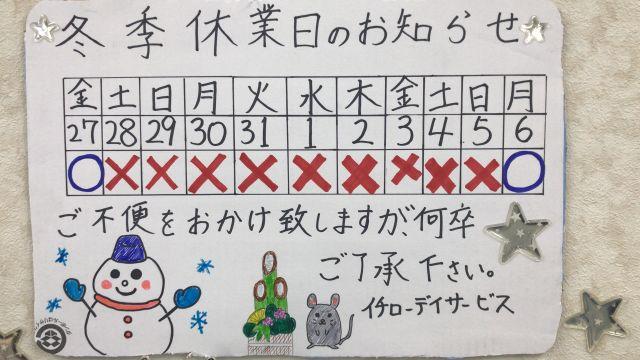 冬季休業日のお知らせ
金 土 日 月 火 水 木 金 土 日 月
27 28 29 30 31 1 2 3 4 5 6
○ × × × × × × × × × ○
ご不便をおかけ致しますが、何卒
ご了承下さい。
イチローデイサービス